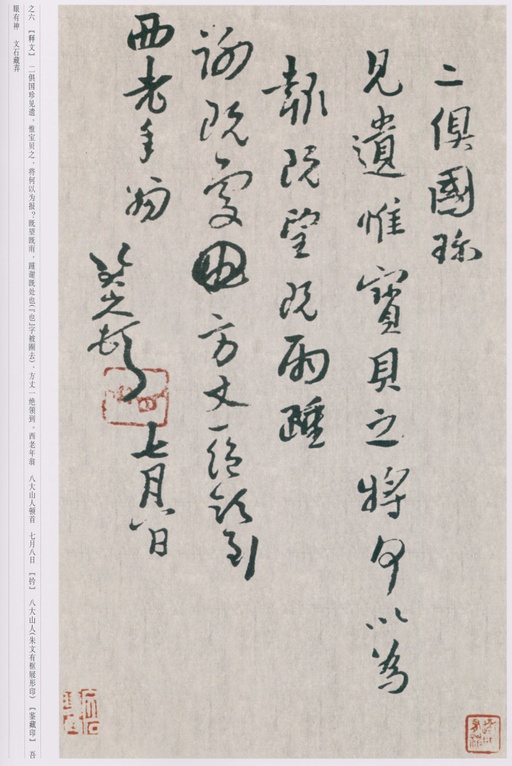 二俱國珎
見遺惟寶貝之將何以為
報既望既雨踵
谢既處也方丈一绝领到
西老年翁
八大山人頓首
七月八日
之六 【释文】 二俱国珍见遗、惟宝贝之、将何以为报？既望既雨、踵谢既处也(「也」字被圈去)、方丈一绝领到、西老年翁 八大山人顿首 七月八日 【钤】 八大山人(朱文有框屐形印) 【鉴藏印】 吾
眼有神 文石藏弆